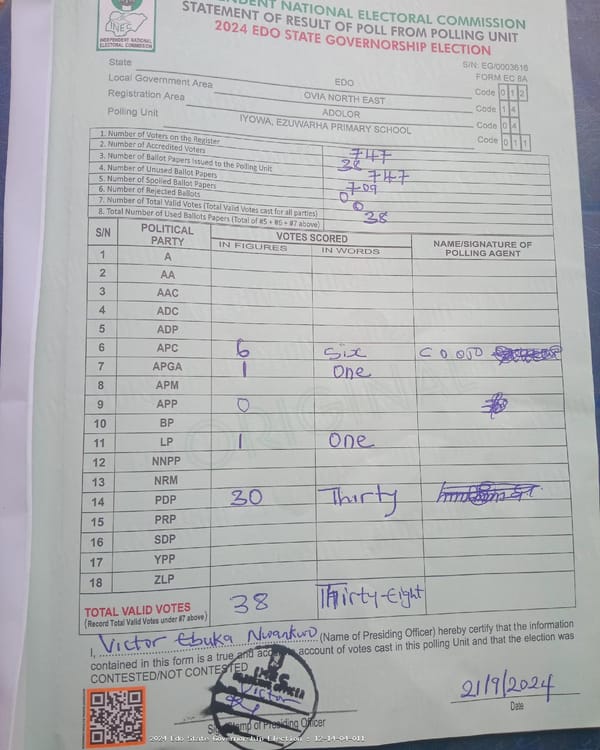 INDEPENDENT NATIONAL ELECTORAL COMMISSION
STATEMENT OF RESULT OF POLL FROM POLLING UNIT
2024 EDO STATE GOVERNORSHIP ELECTION
INEC
INDEPENDENT NATIONAL ELECTORAL COMMISSION
S/N: EG/0003616
FORM EC 8A
State EDO Code 0 1 2
Local Government Area OVIA NORTH EAST Code 1 4
Registration Area ADOLOR Code 0 4
Polling Unit IYOWA, EZUWARHA PRIMARY SCHOOL Code 0 1 1
1. Number of Voters on the Register 747
2. Number of Accredited Voters 38
3. Number of Ballot Papers Issued to the Polling Unit 747
4. Number of Unused Ballot Papers 709
5. Number of Spoiled Ballot Papers 0
6. Number of Rejected Ballots 0
7. Number of Total Valid Votes (Total Valid Votes cast for all parties) 38
8. Total Number of Used Ballots Papers (Total of #5 + #6 + #7 above)
S/N POLITICAL PARTY VOTES SCORED NAME/SIGNATURE OF POLLING AGENT
IN FIGURES IN WORDS
1 A
2 AA
3 AAC
4 ADC
5 ADP
6 APC 6 Six
7 APGA 1 One
8 APM
9 APP 0
10 BP
11 LP 1 One
12 NNPP
13 NRM
14 PDP 30 Thirty
15 PRP
16 SDP
17 YPP
18 ZLP
TOTAL VALID VOTES 38 Thirty-Eight
(Record Total Valid Votes under #7 above)
ORIGINAL
I, Victor Ebuka Nwankwo (Name of Presiding Officer) hereby certify that the information
contained in this form is a true and account of votes cast in this polling Unit and that the election was
CONTESTED/NOT CONTESTED
INEC
Victor
21/9/2024
Stamp of Presiding Officer
Date
2024 Edo State Governorship Election : 12-14-04-011